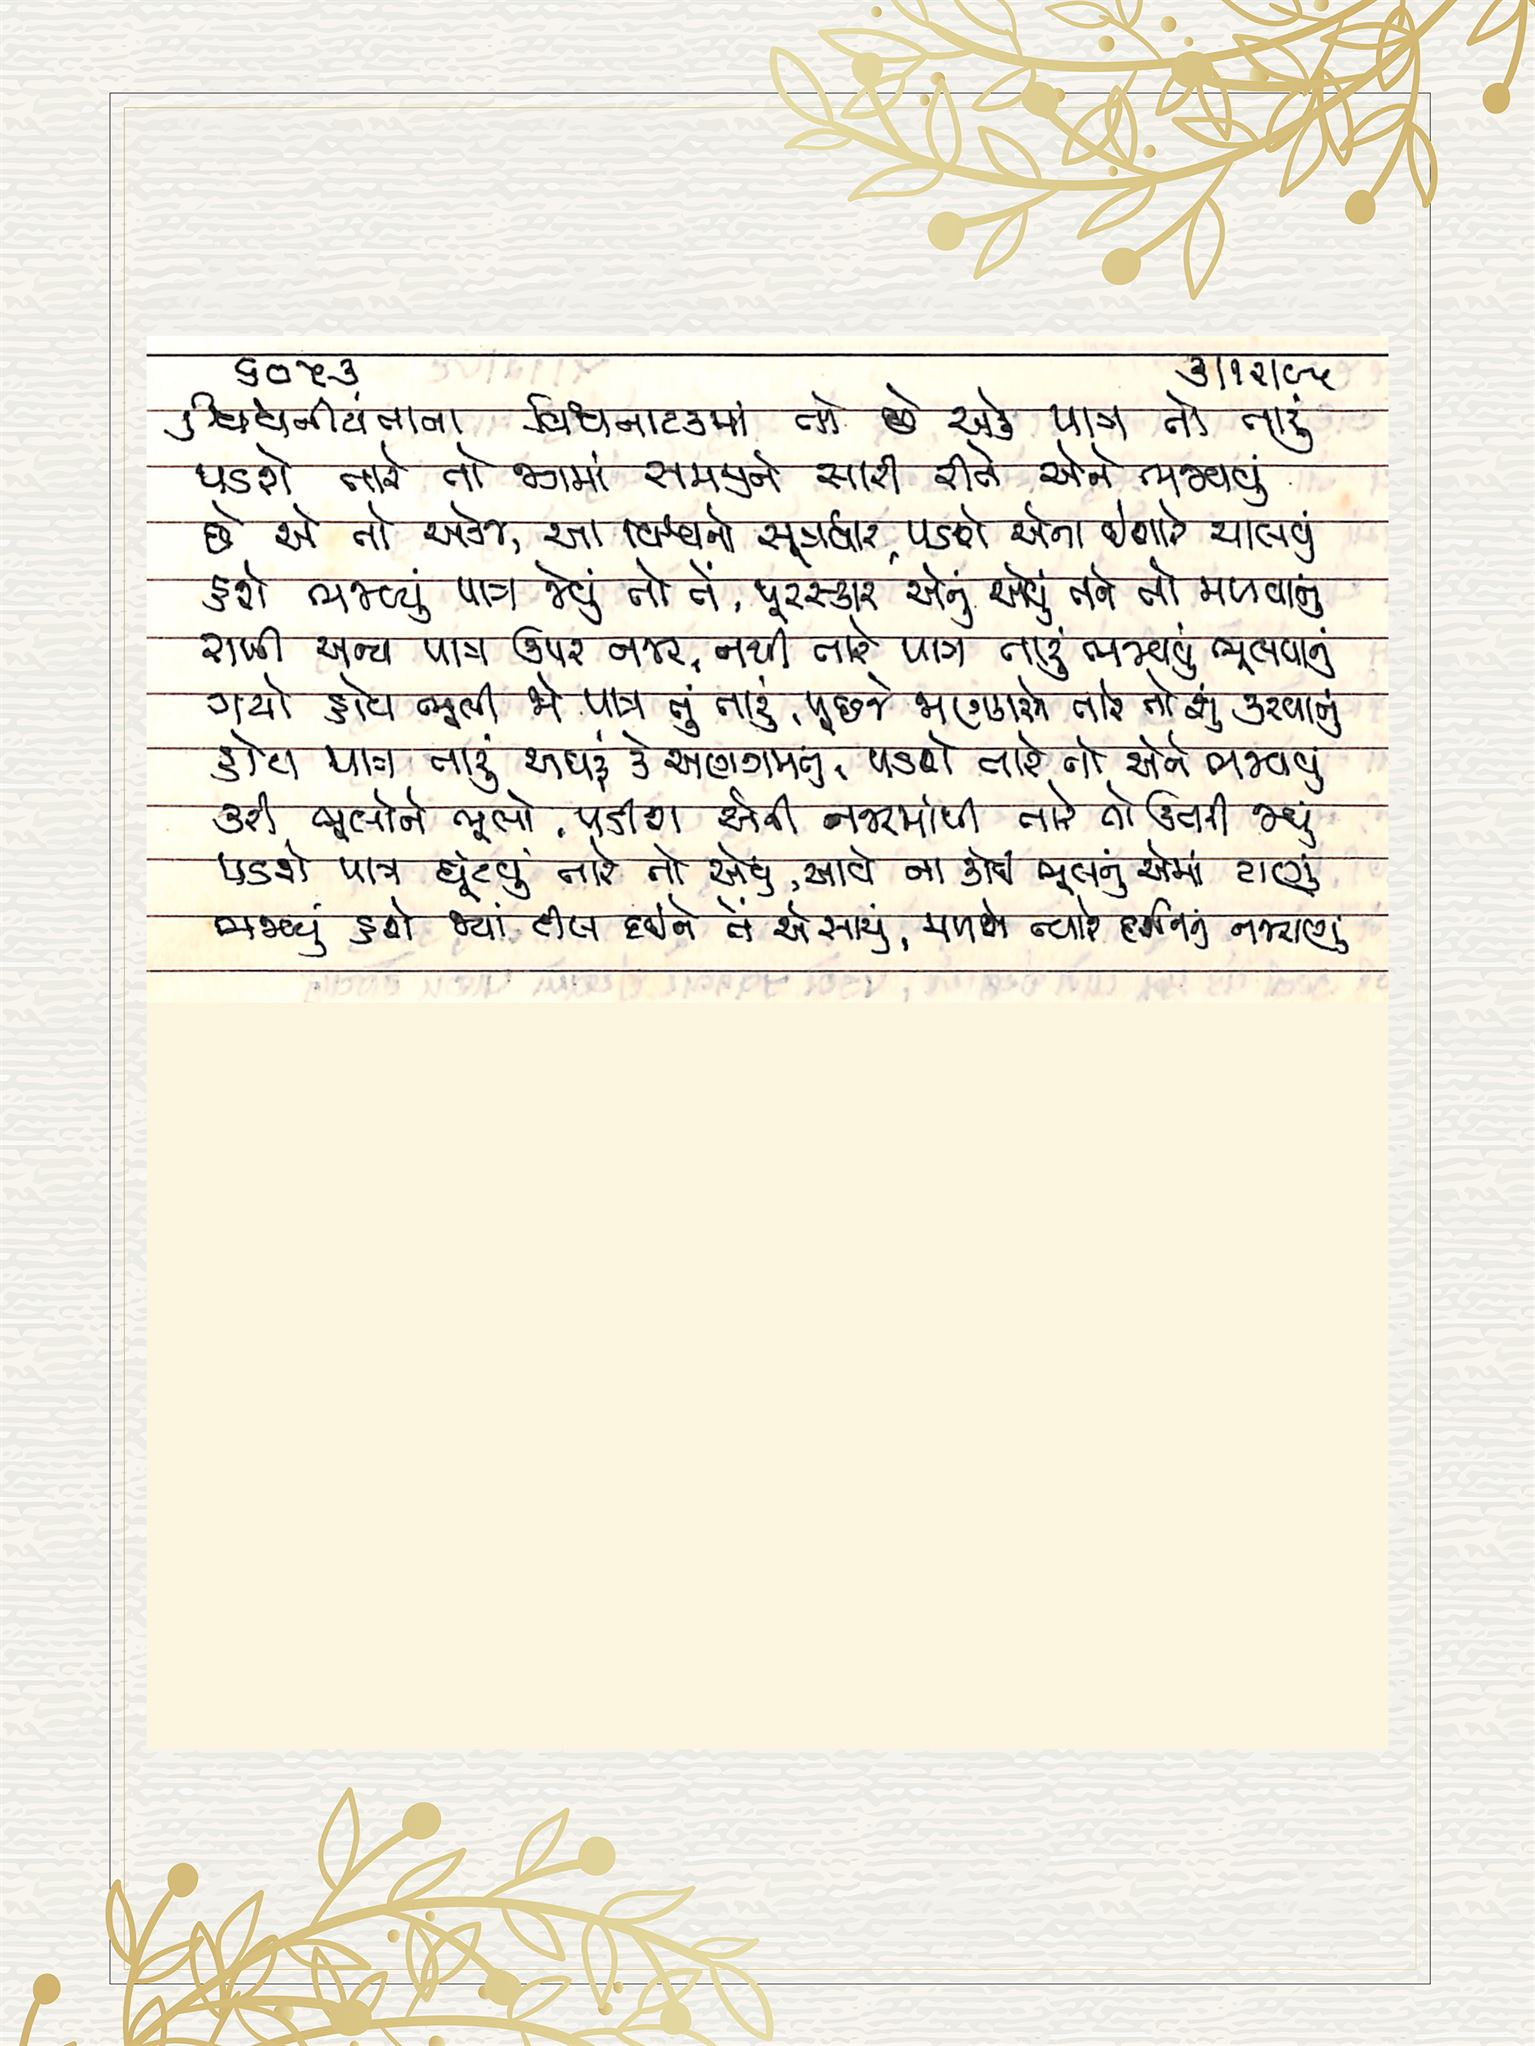 ૬૦૫૩ ૩/૧૨/૯૫
વિશ્વનાટકમાં તો છે એક પાત્ર તો તારું
પડશે તારે તો આમાં સમજીને સારી રીતે એને ભજવવું
છે એ તો એકજ, આ વિશ્વનો સૂત્રધાર, પડશે એના ઇશારે ચાલવું
હશે ભજવ્યું પાત્ર જેવું તો તેં, પૂરસ્કાર એનું એવું તને તો મળવાનું
રાખી અન્ય પાત્ર ઉપર નજર, નથી તારે પાત્ર તારું ભજવવું ભૂલવાનું
ગયો હોય ભૂલી જો પાત્ર તું તારું, પૂછજે જાણકારને તારે તો શું કરવાનું
હોય પાત્ર તારું અઘરું કે અણગમતું, પડશે તારે તો એને ભજવવું
કરી ભૂલોને ભૂલો, પડીશ એની નજરમાંથી તારે તો ઉતરી જવું
પડશે પાત્ર ઘૂંટવું તારે તો એવું, આવે ના કોઈ ભૂલનું એમાં ટાણું
ભજવ્યું હશે જ્યાં દીલ દઈને તેં એ સાચું, મળશે ત્યારે દર્શનનું નજરાણું